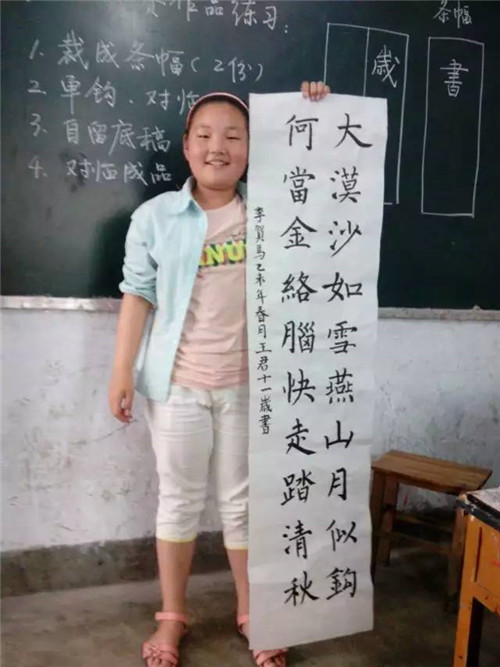 作品练习:
1. 裁成条幅(2份)
2. 单钩、对临
3. 自留底稿
4. 对临成品
条幅
歲
書
大漠沙如雪燕山月似鉤
何當金絡腦快走踏清秋
李賀馬乙未年春月王君十一歲書